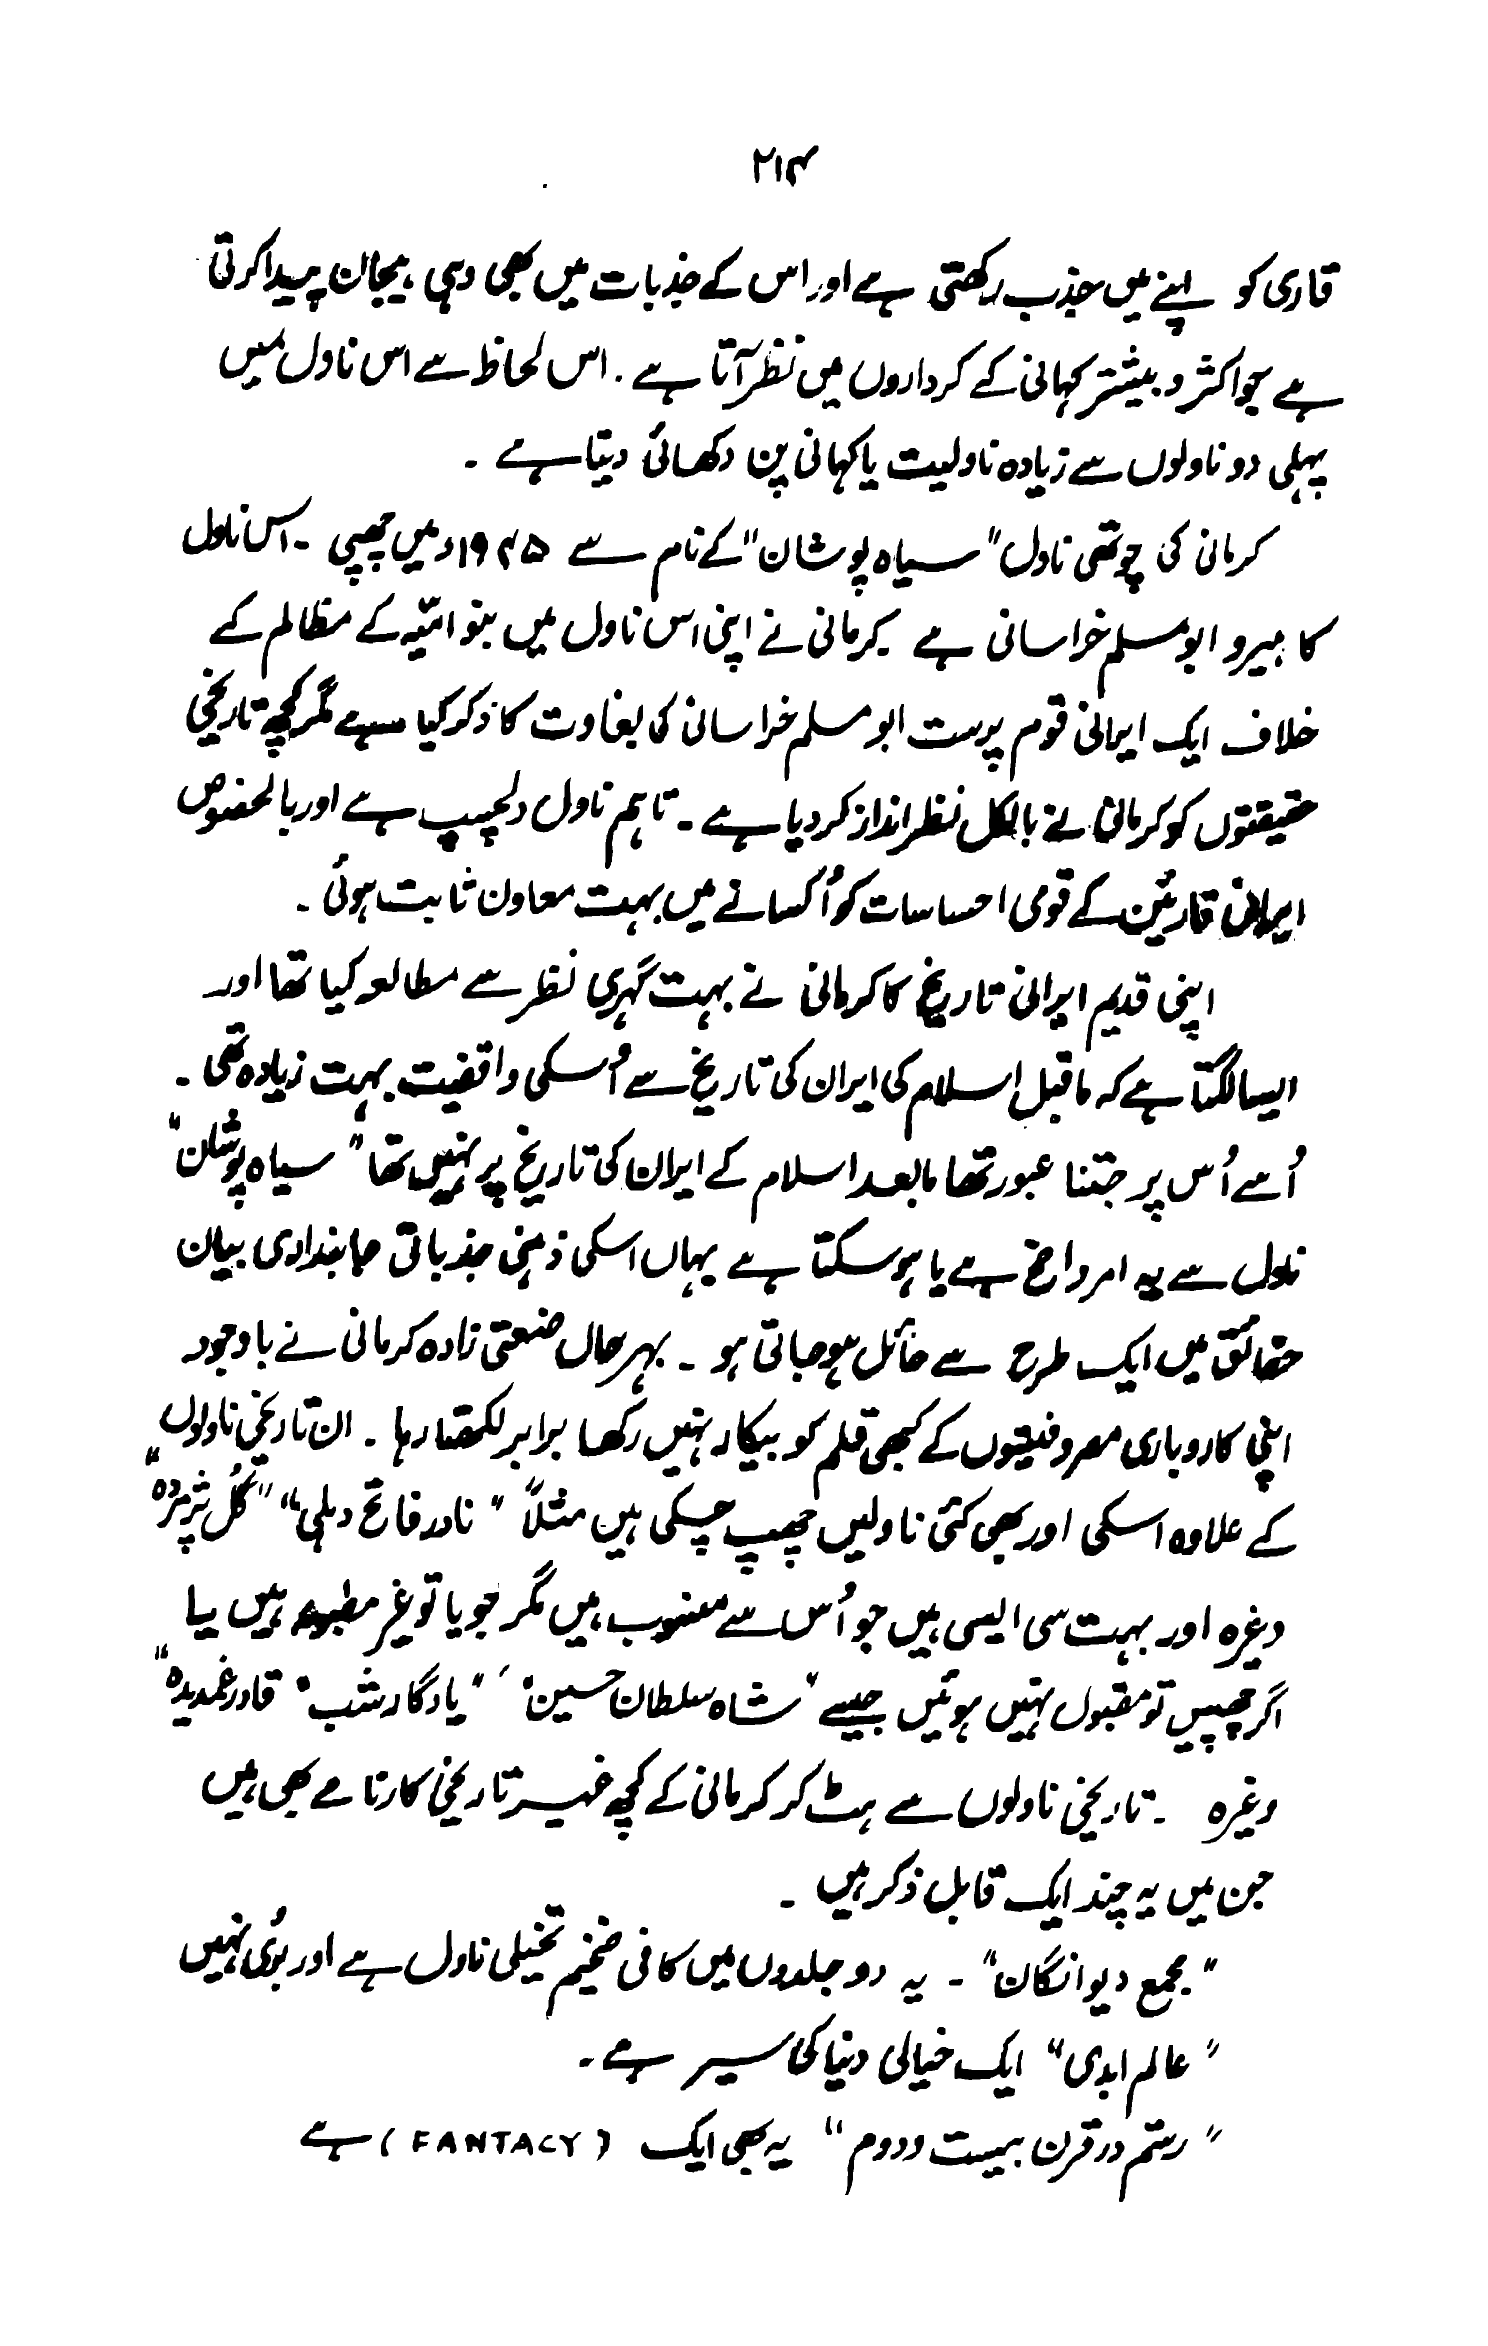 ۲۱۴
قاری کو اپنے میں جذب رکھتی ہے اور اس کے جذبات میں بھی وہی ہیجان پیدا کرتی
ہے جو اکثر و بیشتر کہانی کے کرداروں میں نظر آتا ہے . اس لحاظ سے اس ناول میں
پہلی دو ناولوں سے زیادہ ناولیت یا کہانی پن دکھائی دیتا ہے ۔
کرمانی کی چوتھی ناول "سیاہ پوشان" کے نام سے ۱۹۴۵ء میں چھپی ۔ اس ناول
کا ہیرو ابومسلم خراسانی ہے ۔ کرمانی نے اپنی اس ناول میں بنو امیّہ کے مظالم کے
خلاف ایک ایرانی قوم پرست ابو مسلم خراسانی کی بغاوت کا ذکر کیا ہے مگر کچھ تاریخی
حقیقتوں کو کرمانی نے بالکل نظر انداز کر دیا ہے ۔ تاہم ناول دلچسپ ہے اور بالخصوص
ایرانی قارئین کے قومی احساسات کو اُکسانے میں بہت معاون ثابت ہوئی ۔
اپنی قدیم ایرانی تاریخ کا کرمانی نے بہت گہری نظر سے مطالعہ کیا تھا اور
ایسا لگتا ہے کہ ماقبل اسلام کی ایران کی تاریخ سے اُسکی واقفیت بہت زیادہ تھی ۔
اُسے اُس پر جتنا عبور تھا مابعد اسلام کے ایران کی تاریخ پر نہیں تھا "سیاہ پوشان"
ناول سے یہ امر واضح ہے یا ہو سکتا ہے یہاں اسکی ذہنی جذباتی جانبداری بیان
حقائق میں ایک طرح سے حائل ہو جاتی ہو ۔ بہر حال صنعتی زادہ کرمانی نے باوجود
اپنی کاروباری مصروفیتوں کے کبھی قلم کو بیکار نہیں رکھا برابر لکھتا رہا ۔ ان تاریخی ناولوں
کے علاوہ اسکی اور بھی کئی ناولیں چھپ چکی ہیں مثلاً "نادر فاتح دہلی" "گُل پژمردہ"
وغیرہ اور بہت سی ایسی ہیں جو اُس سے منسوب ہیں مگر جو یا تو غیر مطبوعہ ہیں یا
اگر چھپیں تو مقبول نہیں ہوئیں جیسے "شاہ سلطان حسین" ، "یادگار شب" قادر غمدیدہ"
وغیرہ ۔ تاریخی ناولوں سے ہٹ کر کرمانی کے کچھ غیر تاریخی کارنامے بھی ہیں
جن میں یہ چند ایک قابل ذکر ہیں ۔
"مجمع دیوانگان" ۔ یہ دو جلدوں میں کافی ضخیم تخیلی ناول ہے اور بُری نہیں
"عالم ابدی" ایک خیالی دنیا کی سیر ہے ۔
"رستم در قرن بیست و دوم" یہ بھی ایک (FANTACY) ہے